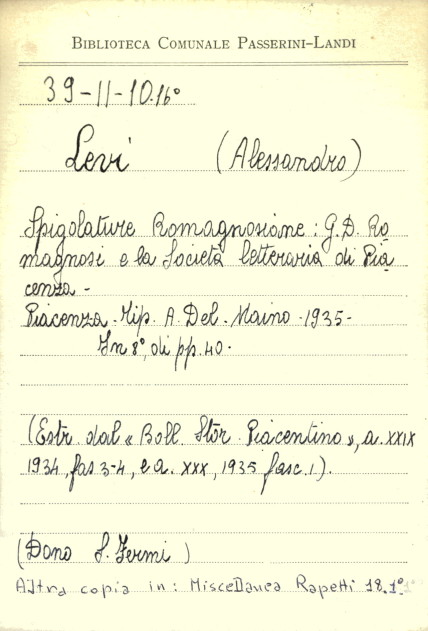 BIBLIOTECA COMUNALE PASSERINI-LANDI
39-11-10.16°
Levi (Alessandro)
Spigolature Romagnosiane: G.D. Ro
magnosi e la Società letteraria di Pia
cenza-
Piacenza-Tip. A. Del. Maino-1935-
In 8°, di pp. 40.
(Estr. dal « Boll. Stor. Piacentino », a. XXIX
1934, fas 3-4, e a. XXX, 1935 fasc. 1).
(Dono S. Fermi )
Altra copia in: Miscellanea Rapetti 18.1°